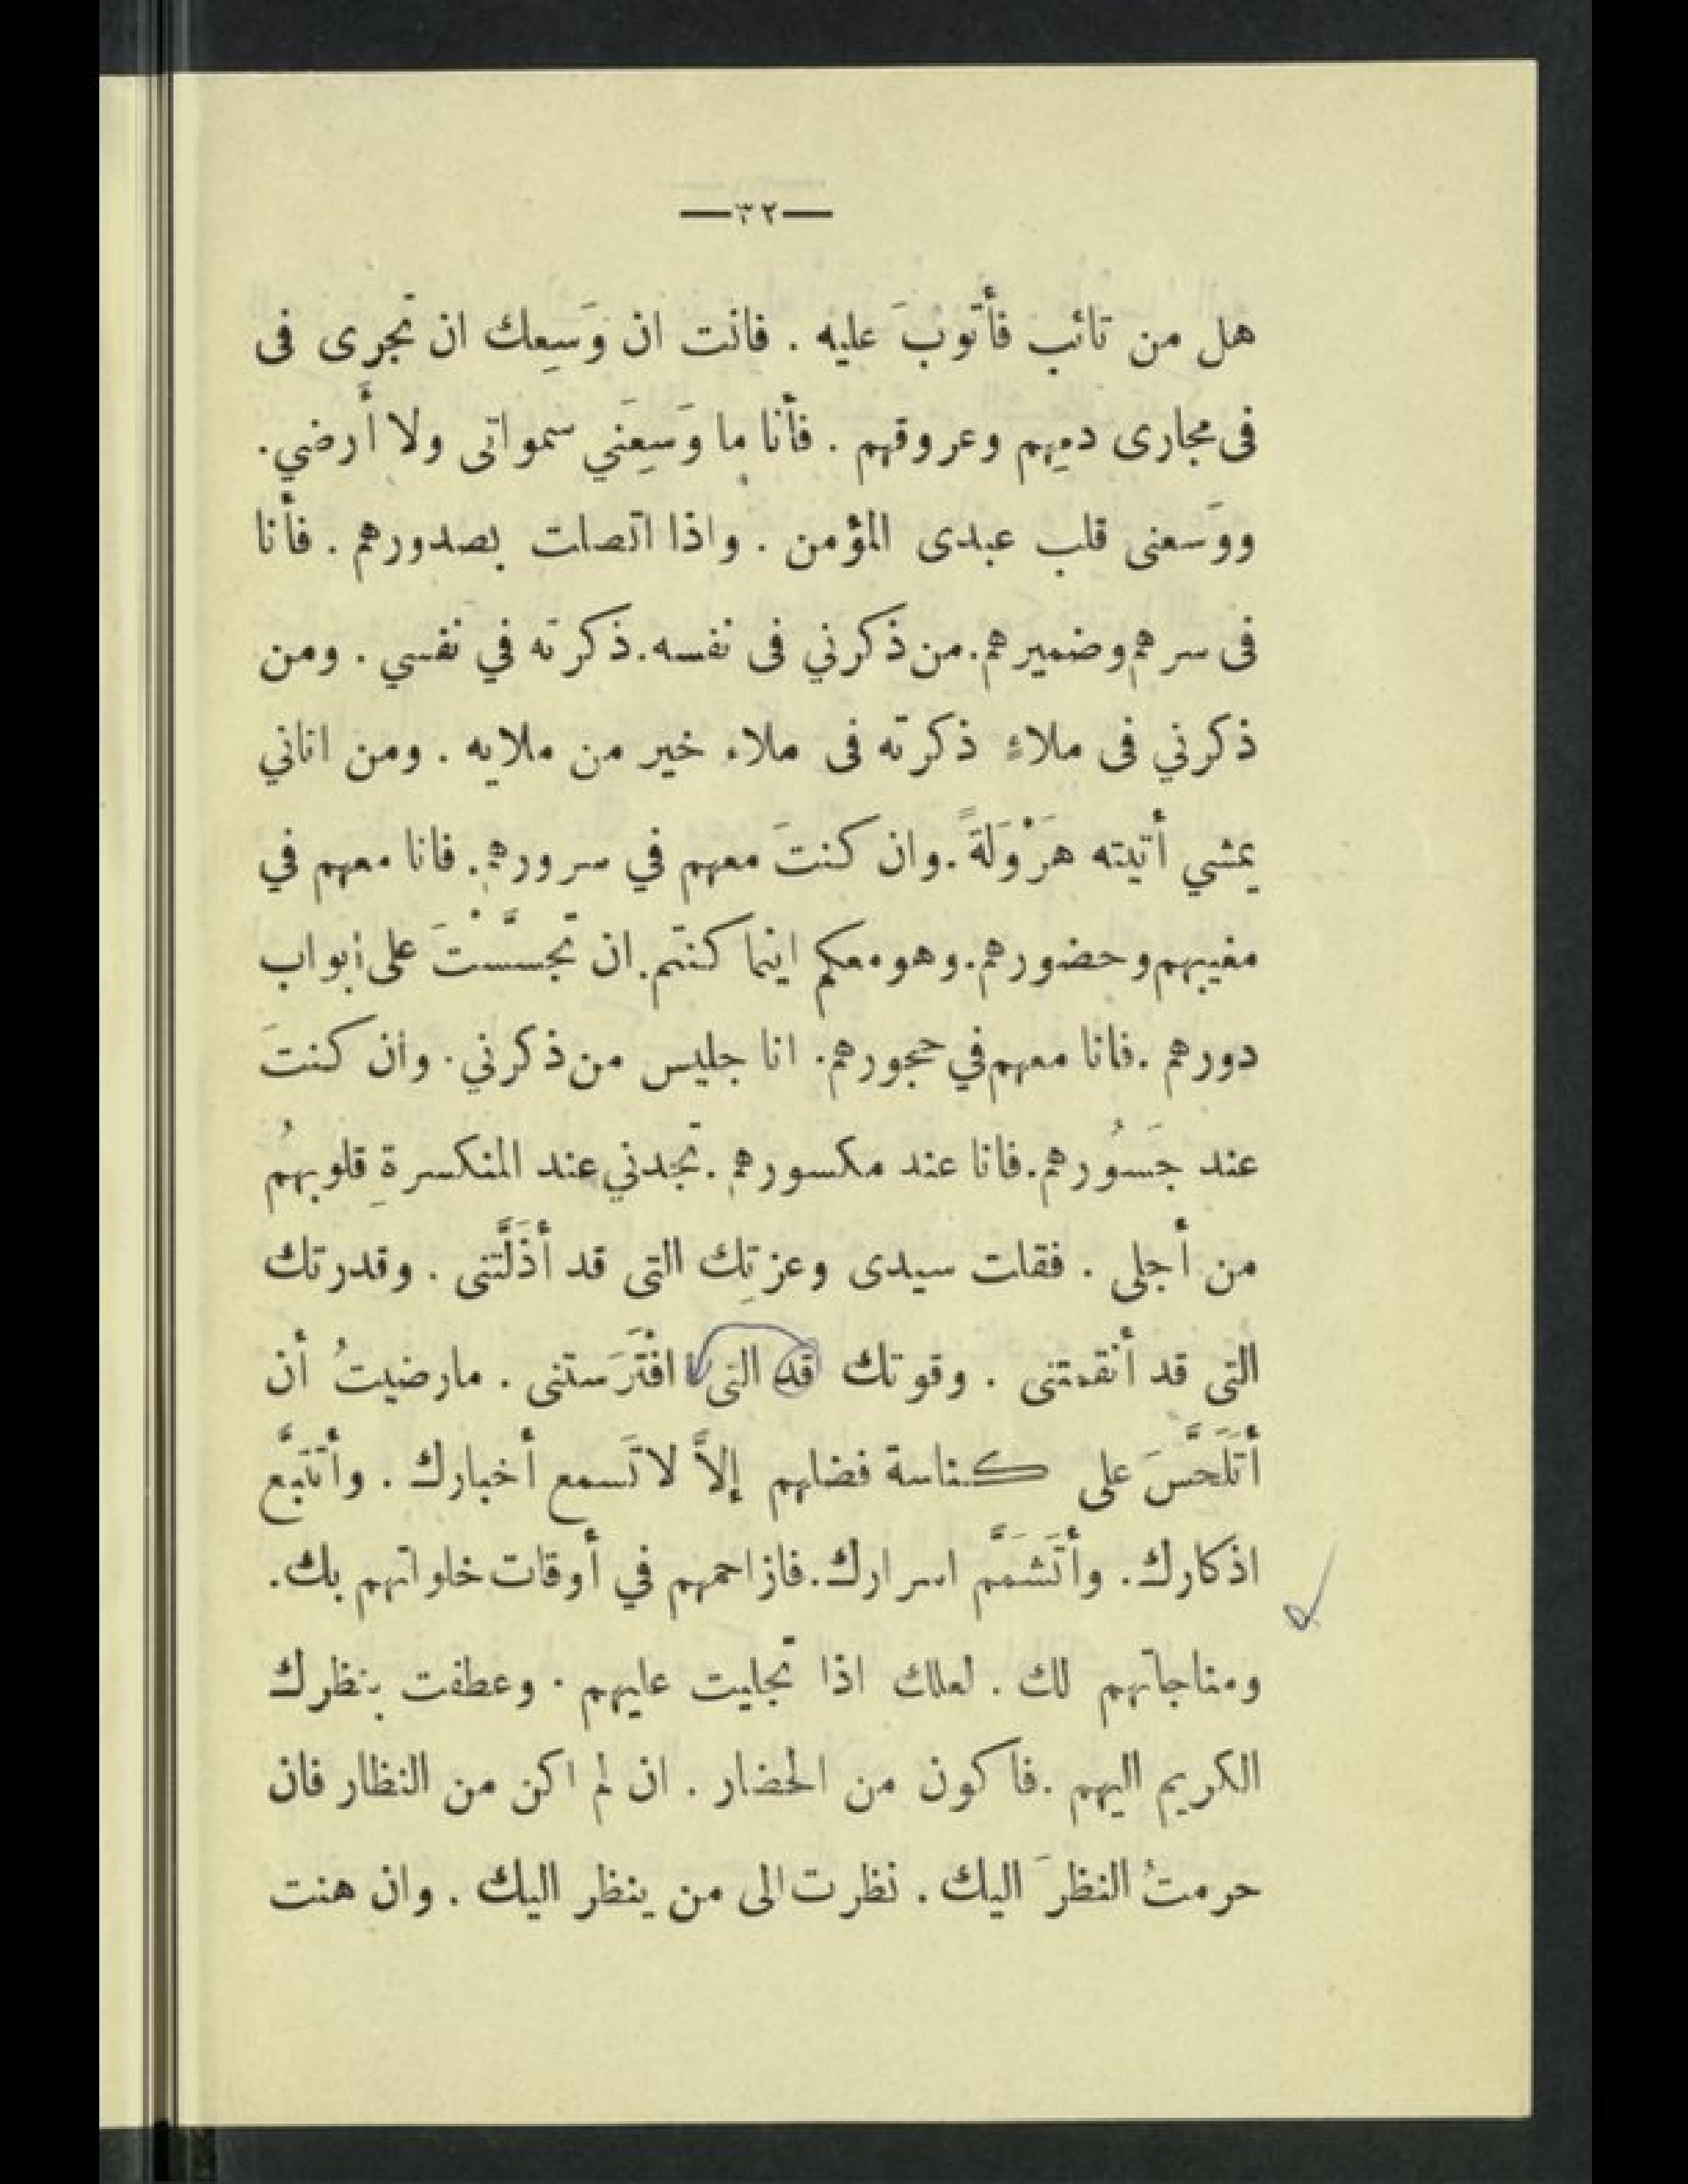 —٣٢—
هل من تائب فأتوبَ عليه . فانت ان وَسِعك ان تجرى فى
فى مجارى دمِهم وعروقهم . فأنا ما وَسِعَني سمواتى ولا أرضي .
ووَسعنى قلب عبدى المؤمن . واذا اتصلت بصدورهم . فأنا
فى سرهم وضميرهم . من ذكرني فى نفسه . ذكرته في نفسي . ومن
ذكرني فى ملاءٍ ذكرته فى ملاء خير من ملايه . ومن اتاني
يمشي أتيته هَرْوَلَةً . وان كنتَ معهم في سرورهم . فانا معهم في
مغيبهم وحضورهم . وهو معكم اينما كنتم . ان تجسَّسْتَ على أبواب
دورهم . فانا معهم في حجورهم . انا جليس من ذكرني . وان كنتَ
عند جَسُورهم . فانا عند مكسورهم . تجدني عند المنكسرةِ قلوبهُم
من أجلى . فقلت سيدى وعزتِك التى قد أذَلَّتنى . وقدرتك
التى قد أنقمتنى . وقوتك قد التى افتَرَستنى . مارضيتُ أن
أتَلَحَّسَ على كناسة فضلهم إلاَّ لاتَسمع أخبارك . وأتتبَّع
اذكارك . وأتَشمَّم اسرارك . فازاحمهم في أوقات خلواتهم بك .
ومناجاتهم لك . لعلك اذا تجليت عليهم . وعطفت بنظرك
الكريم اليهم . فاكون من الحضار . ان لم اكن من النظار فان
حرمتُ النظرَ اليك . نظرت الى من ينظر اليك . وان هنت